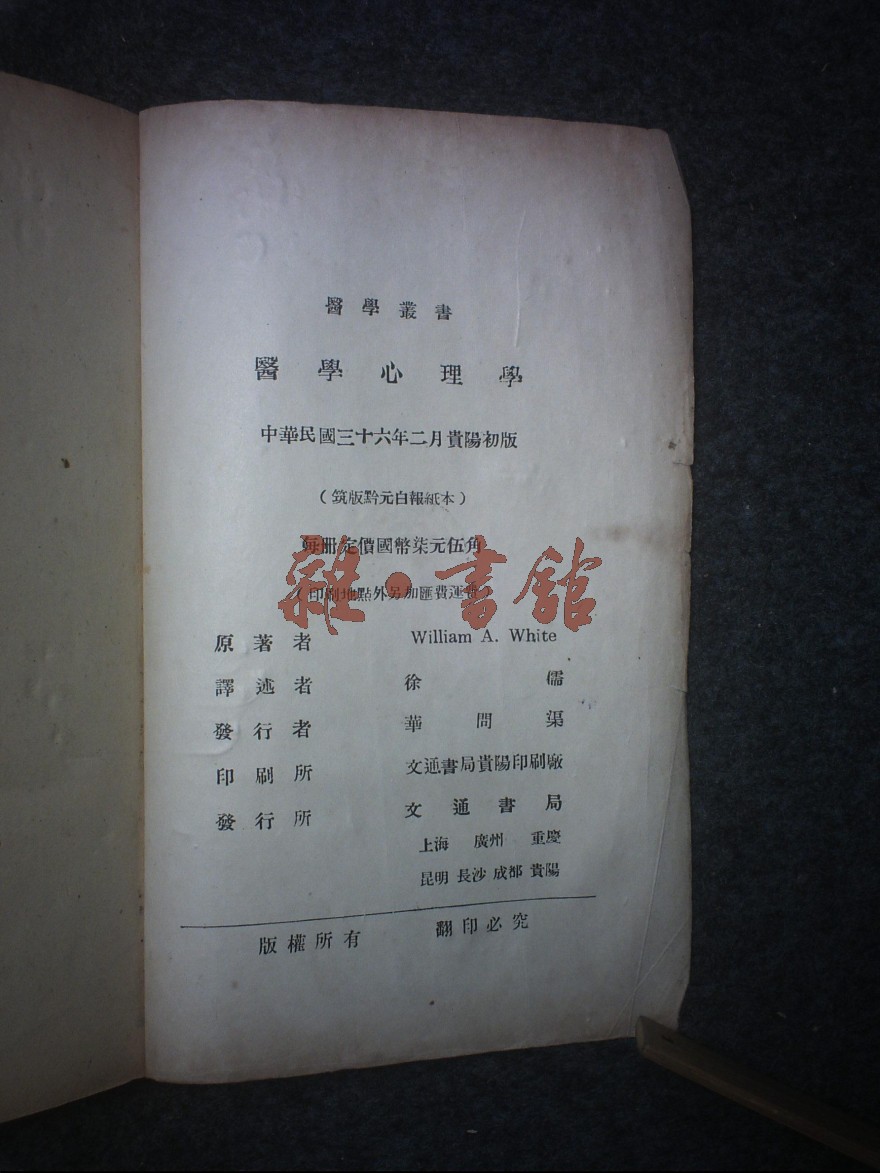 醫學叢書
醫學心理學
中華民國三十六年二月貴陽初版
（筑版黔元白報紙本）
每冊定價國幣柒元伍角
（印刷地點外另加匯費運費）
雜·書館
原著者 William A. White
譯述者 徐儒
發行者 華問渠
印刷所 文通書局貴陽印刷廠
發行所 文通書局
上海 廣州 重慶
昆明 長沙 成都 貴陽
版權所有 翻印必究